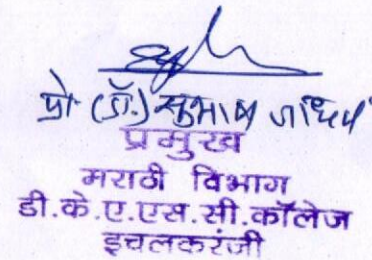 प्रो (डॉ.) सुभाष जाधव
प्रमुख
मराठी विभाग
डी.के.ए.एस.सी.कॉलेज
इचलकरंजी